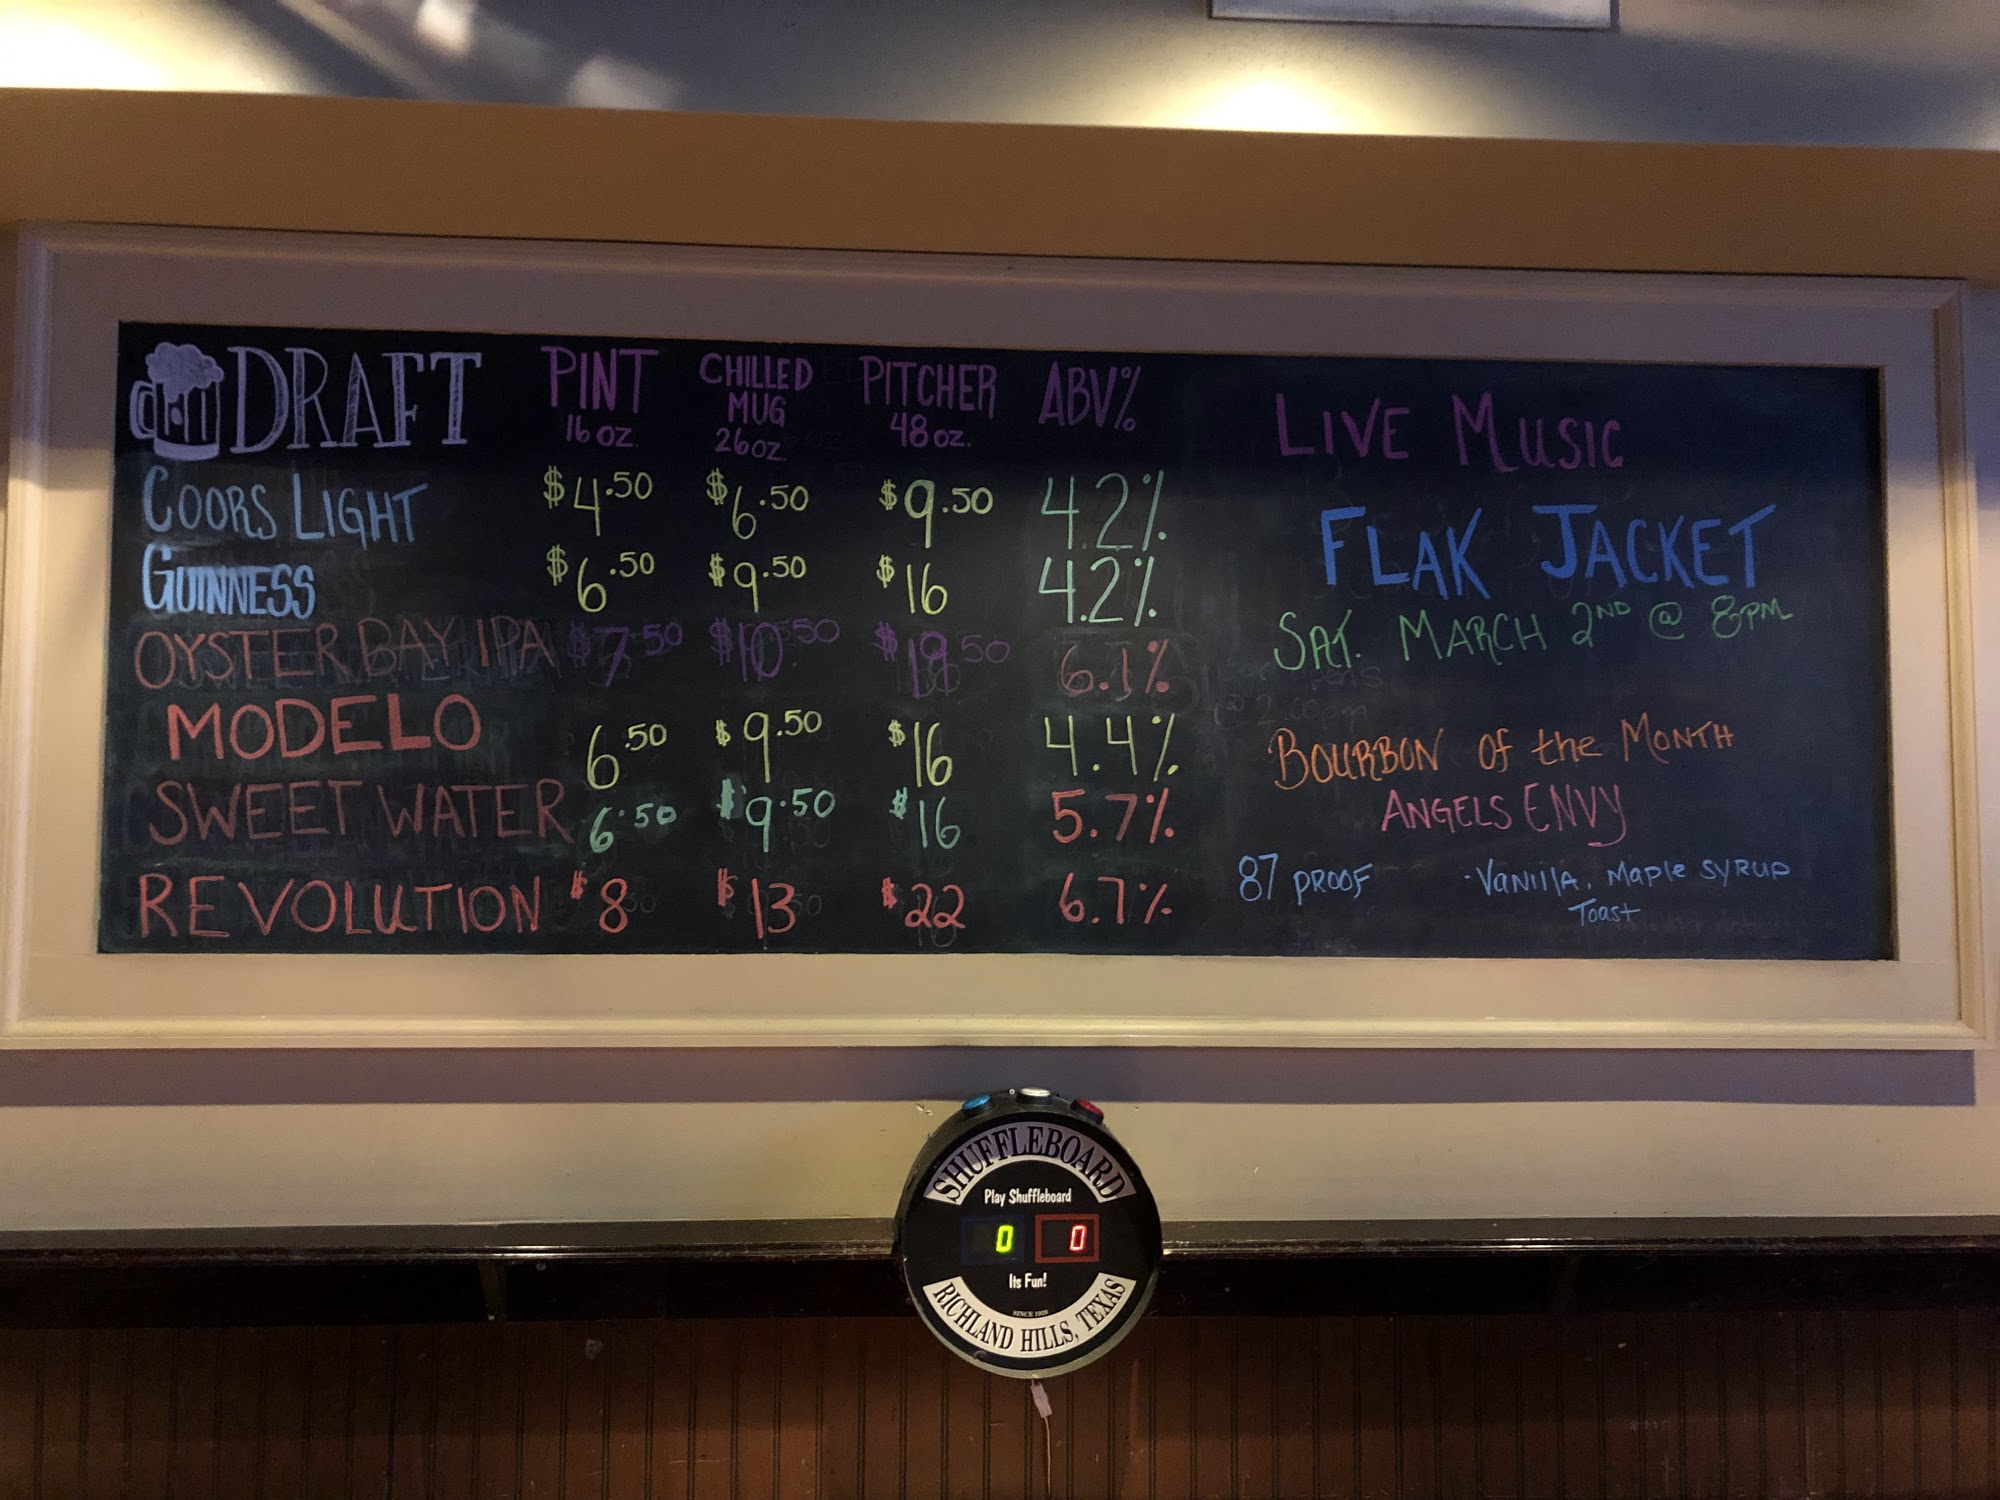 DRAFT PINT CHILLED PITCHER ABV%
MUG
16 oz. 26 oz 48 oz.
COORS LIGHT $4.50 $6.50 $9.50 4.2%
GUINNESS $6.50 $9.50 $16 4.2%
OYSTER BAY IPA $7.50 $10.50 $19.50 6.1%
MODELO 6.50 $9.50 $16 4.4%
SWEET WATER 6.50 $9.50 $16 5.7%
REVOLUTION $8 $13 $22 6.7%
LIVE MUSIC
FLAK JACKET
SAT. MARCH 2ND @ 8PM
BOURBON of the MONTH
ANGELS ENVY
87 PROOF ·VANILLA, MAPLE SYRUP
TOAST
SHUFFLEBOARD
Play Shuffleboard
0 0
Its Fun!
SINCE 1928
RICHLAND HILLS, TEXAS